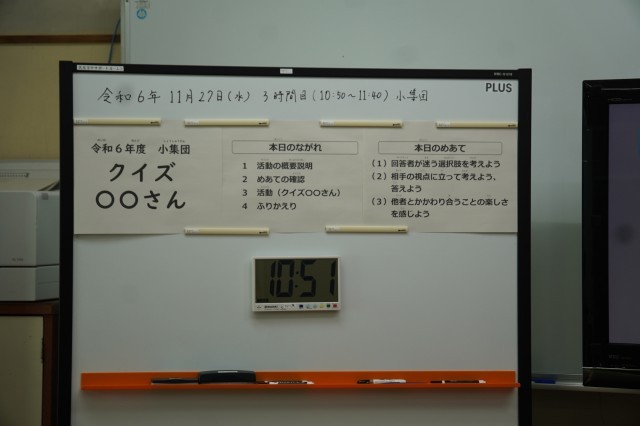 PLUS
令和6年 11月27日(水) 3時間目(10:50～11:40) 小集団
令和6年度 小集団
クイズ
〇〇さん
本日のながれ
1 活動の概要説明
2 めあての確認
3 活動（クイズ〇〇さん）
4 ふりかえり
本日のめあて
（1）回答者が迷う選択肢を考えよう
（2）相手の視点に立って考えよう、
答えよう
（3）他者とかかわり合うことの楽しさ
を感じよう
10:51